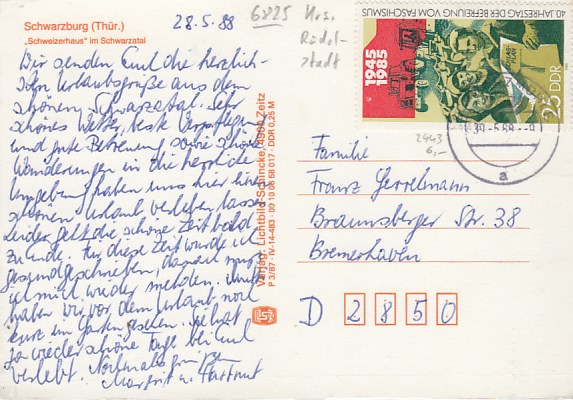 Schwarzburg (Thür.)
„Schweizerhaus" im Schwarzatal
28.5.88
6825 Krs.
Rudol-
stadt
Wir senden Euch die herzlich-
sten Urlaubsgrüße aus dem
schönen Schwarzatal. Sehr
schönes Wetter, beste Verpflegung
und gute Betreuung sowie schöne
Wanderungen in die herrliche
Umgebung haben uns hier einen
schönen Urlaub verleben lassen.
Leider geht die schöne Zeit bald
zu Ende. Für diese Zeit wurde ich
gesundgeschrieben, danach muß
ich mich wieder melden. Mutti
haben wir vor dem Urlaub noch
kurz im Garten gesehen. Sie hat
ja wieder schöne Tage bei Euch
verlebt. Nochmals grüßen
Margrit u. Hartmut
Verlag: Lichtbild-Schincke, 4900 Zeitz
P 3/87 · IV-14-483 · 00 10 06 58 017 · DDR 0,25 M
1945
1985
40. JAHRESTAG DER BEFREIUNG VOM FASCHISMUS
25 DDR
2443
6,-
30.-5.88.--9
a
Familie
Franz
Braunsberger Str. 38
Bremerhaven
D 2850